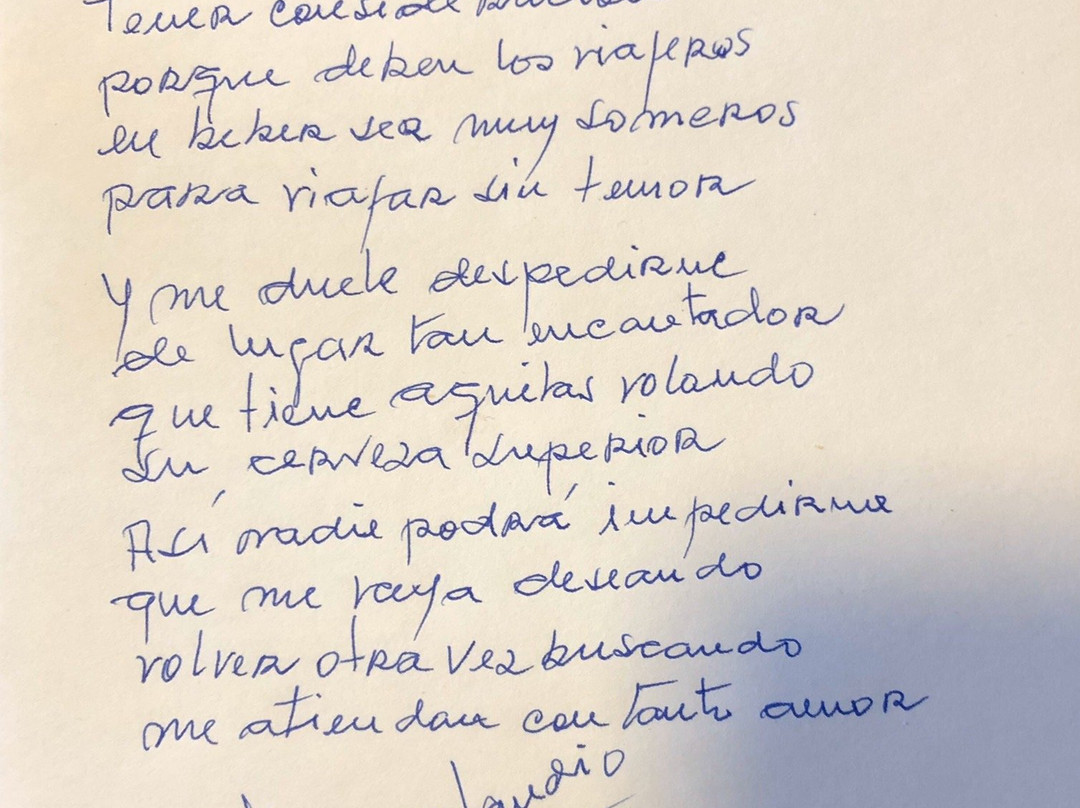 Tener
porque deben los viajeros
en beber ser muy someros
para viajar sin temor
Y me duele despedirme
de lugar tan encantador
que tiene aguitas volando
su cerveza superior
Así nadie podrá impedirme
que me vaya deseando
volver otra vez buscando
me atiendan con tanto amor